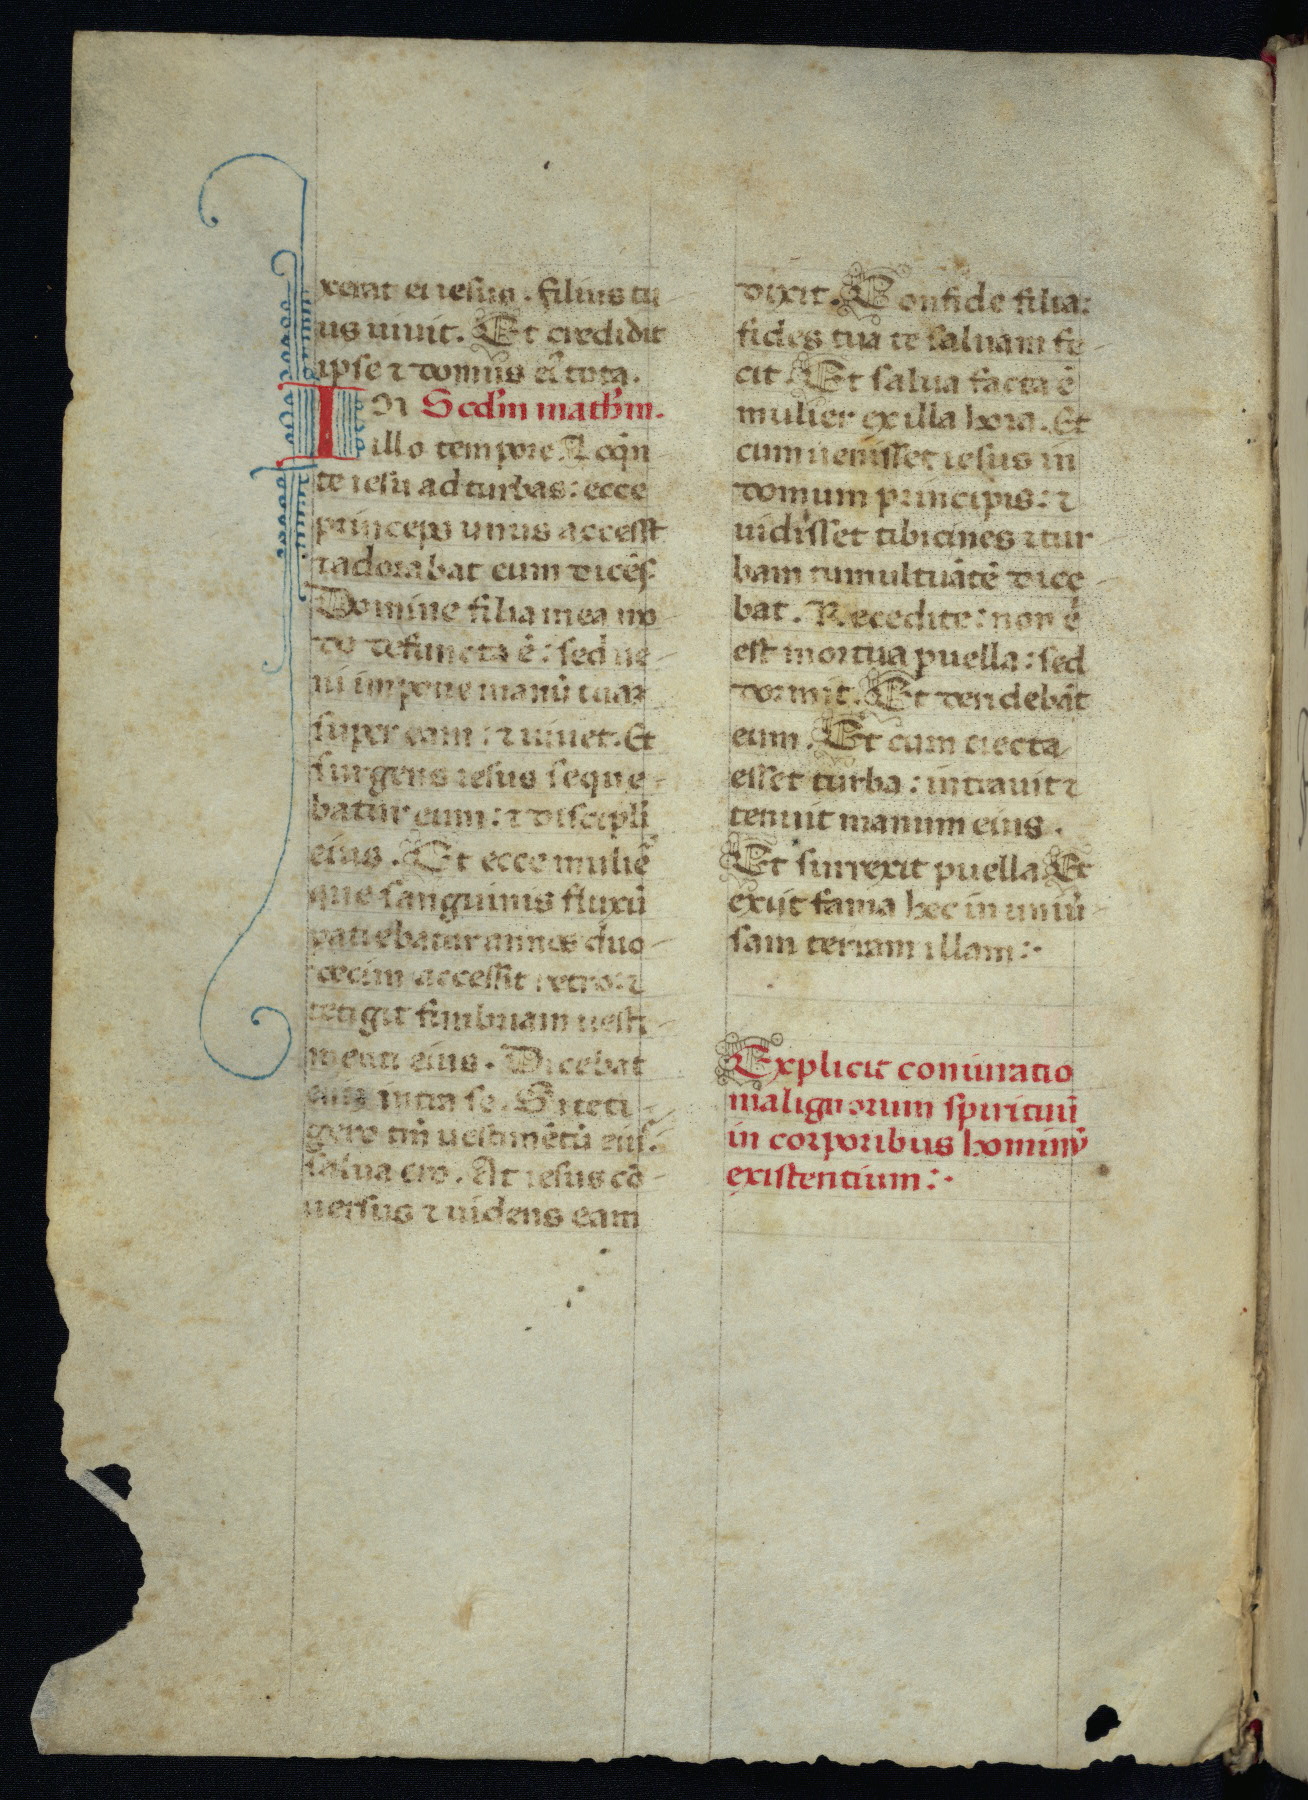 xerat ei iesus. filius tu
us uiuit. Et credidit
ipse ⁊ domus eius tota.
IN Scdm mathm.
illo tempore. Loqn
te iesu ad turbas: ecce
princeps unus accessit
⁊ adorabat eum dicēs.
Domine filia mea mo
do defuncta ē: sed ue
ni impone manū tuaꝫ
super eam: ⁊ uiuet. Et
surgens iesus seque
batur eum: ⁊ discipli
eius. Et ecce muliē
que sanguinis fluxū
patiebatur annos duo
decim accessit retro: ⁊
tetigit fimbriam uesti
menti eius. Dicebat
enim intra se. Si teti
gero tm uestimētū eius.
salua ero. At iesus cō
uersus ⁊ uidens eam
dixit. Confide filia:
fides tua te saluam fe
cit. Et salua facta ē
mulier ex illa hora. Et
cum uenisset iesus in
domum principis: ⁊
uidisset tibicines ⁊ tur
bam tumultuātē dice
bat. Recedite: non ē
est mortua puella: sed
dormit. Et deridebāt
eum. Et cum eiecta
esset turba: intrauit ⁊
tenuit manum eius.
Et surrexit puella. Et
exiit fama hec in uniū
sam terram illam:·
Explicit coniuratio
malignorum spirituū
in corporibus hominū
existentium:·